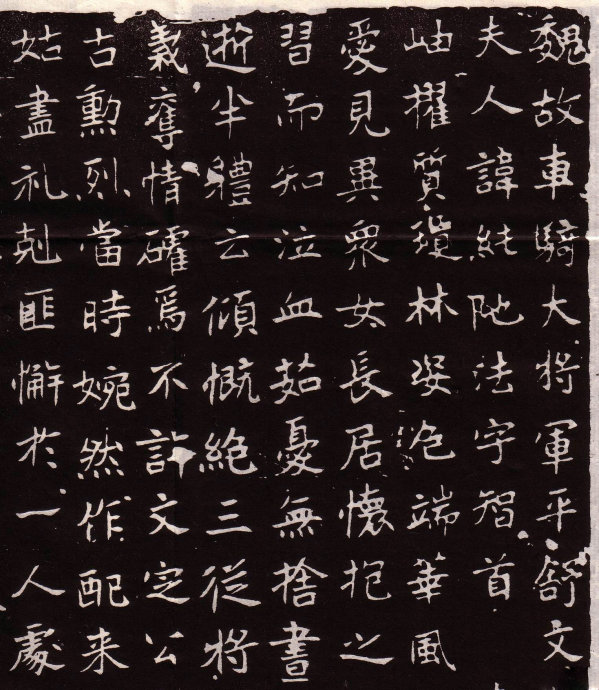 魏故車騎大將軍平舒文
夫人諱純阤法字智首
岫擢質瓊林姿色端華風
愛見異衆女長居懷抱之
習而知泣血茹憂無捨晝
逝半體云傾慨絶三從將
義奪情礭焉不許文定公
古勳烈當時婉然作配来
姑盡礼剋匪懈於一人處